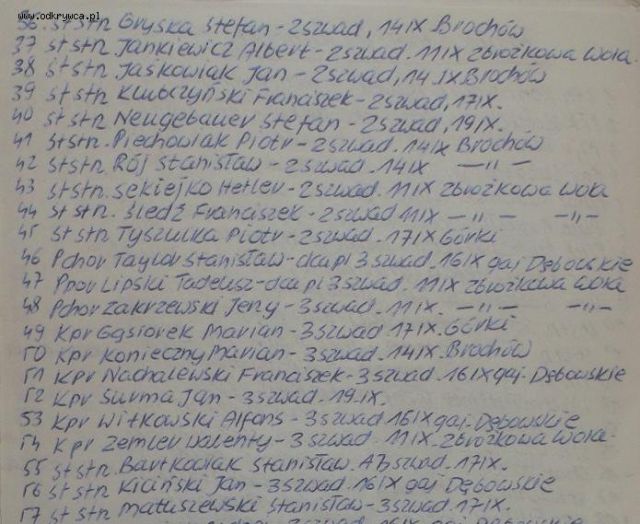 www.odkrywca.pl
36. st stn Gryska Stefan - 2 szwad, 14 IX Brochów
37 st stn Jankiewicz Albert - 2 szwad. 11 IX Zbrożkowa Wola.
38 st stn Jaśkowiak Jan - 2 szwad, 14. IX Brochów
39 st stn Klubczyński Franciszek - 2 szwad, 17 IX.
40 st stn Neugebauer Stefan - 2 szwad, 19 IX.
41 st stn. Piechowiak Piotr - 2 szwad. 14 IX Brochów
42 st stn. Rój Stanisław - 2 szwad. 14 IX —„—
43 st stn. Sekiejko - 2 szwad. 11 IX Zbrożkowa Wola
44 st stn. Śledź Franciszek - 2 szwad 11 IX —„— —„—
45 st stn Tyszulka Piotr - 2 szwad. 17 IX Górki
46 Pchor Taylor Stanisław - dca pl 3 szwad. 16 IX gaj Dębowskie
47 Ppor Lipski Tadeusz - dca pl 3 szwad. 11 IX Zbrożkowa Wola
48 Pchor Zakrzewski Jerzy - 3 szwad. 11 IX. —„— —„—
49 Kpr Gąsiorek Marian - 3 szwad 17 IX. Górki
50 Kpr Konieczny Marian - 3 szwad. 14 IX. Brochów
51 Kpr Nachalewski Franciszek - 3 szwad. 16 IX gaj. Dębowskie
52 Kpr Surma Jan - 3 szwad. 19. IX.
53 Kpr Witkowski Alfons - 3 szwad 16 IX gaj. Dębowskie
54 Kpr Zemler Walenty - 3 szwad. 11 IX. Zbrożkowa Wola.
55 st stn. Bartkowiak Stanisław. szwad. 17 IX.
56 st stn Kiciński Jan - 3 szwad. 16 IX gaj Dębowskie
57 st stn Matuszewski Stanisław - 3 szwad. 17 IX.